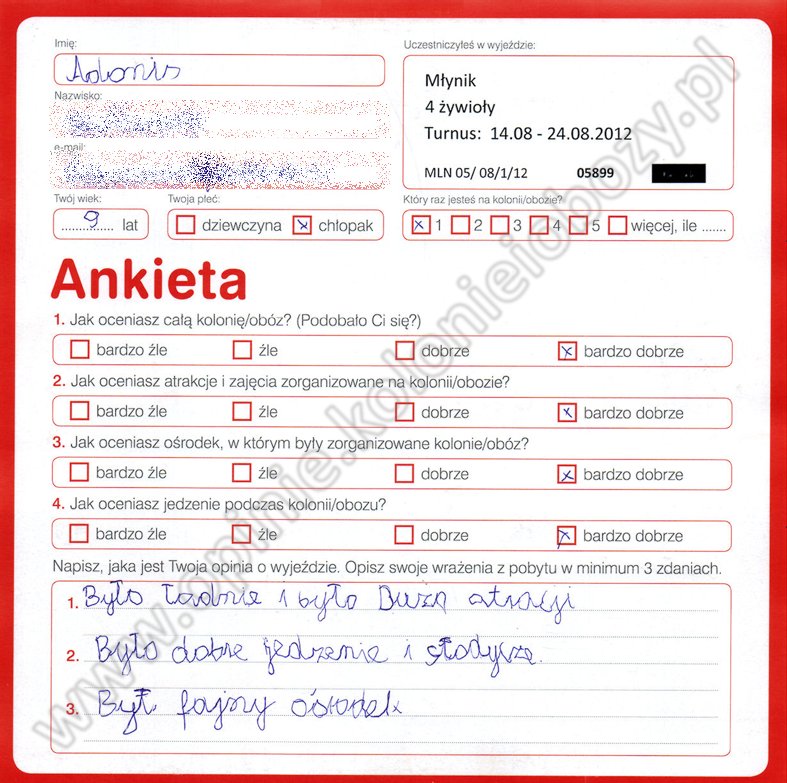 Imię:
Adonis
Uczestniczyłeś w wyjeździe:
Młynik
4 żywioły
Turnus: 14.08 - 24.08.2012
MLN 05/ 08/1/12 05899
Nazwisko:
e-mail:
Twój wiek:
9 lat
Twoja płeć:
dziewczyna x chłopak
Który raz jesteś na kolonii/obozie?
x 1 2 3 4 5 więcej, ile .......
Ankieta
1. Jak oceniasz całą kolonię/obóz? (Podobało Ci się?)
bardzo źle źle dobrze x bardzo dobrze
2. Jak oceniasz atrakcje i zajęcia zorganizowane na kolonii/obozie?
bardzo źle źle dobrze x bardzo dobrze
3. Jak oceniasz ośrodek, w którym były zorganizowane kolonie/obóz?
bardzo źle źle dobrze x bardzo dobrze
4. Jak oceniasz jedzenie podczas kolonii/obozu?
bardzo źle źle dobrze x bardzo dobrze
Napisz, jaka jest Twoja opinia o wyjeździe. Opisz swoje wrażenia z pobytu w minimum 3 zdaniach.
1. Było ładnie i było Dużo atracji
2. Było dobre jedzenie i słodycze.
3. Był fajny ośrodek
www.opinie.kolonieiobozy.pl